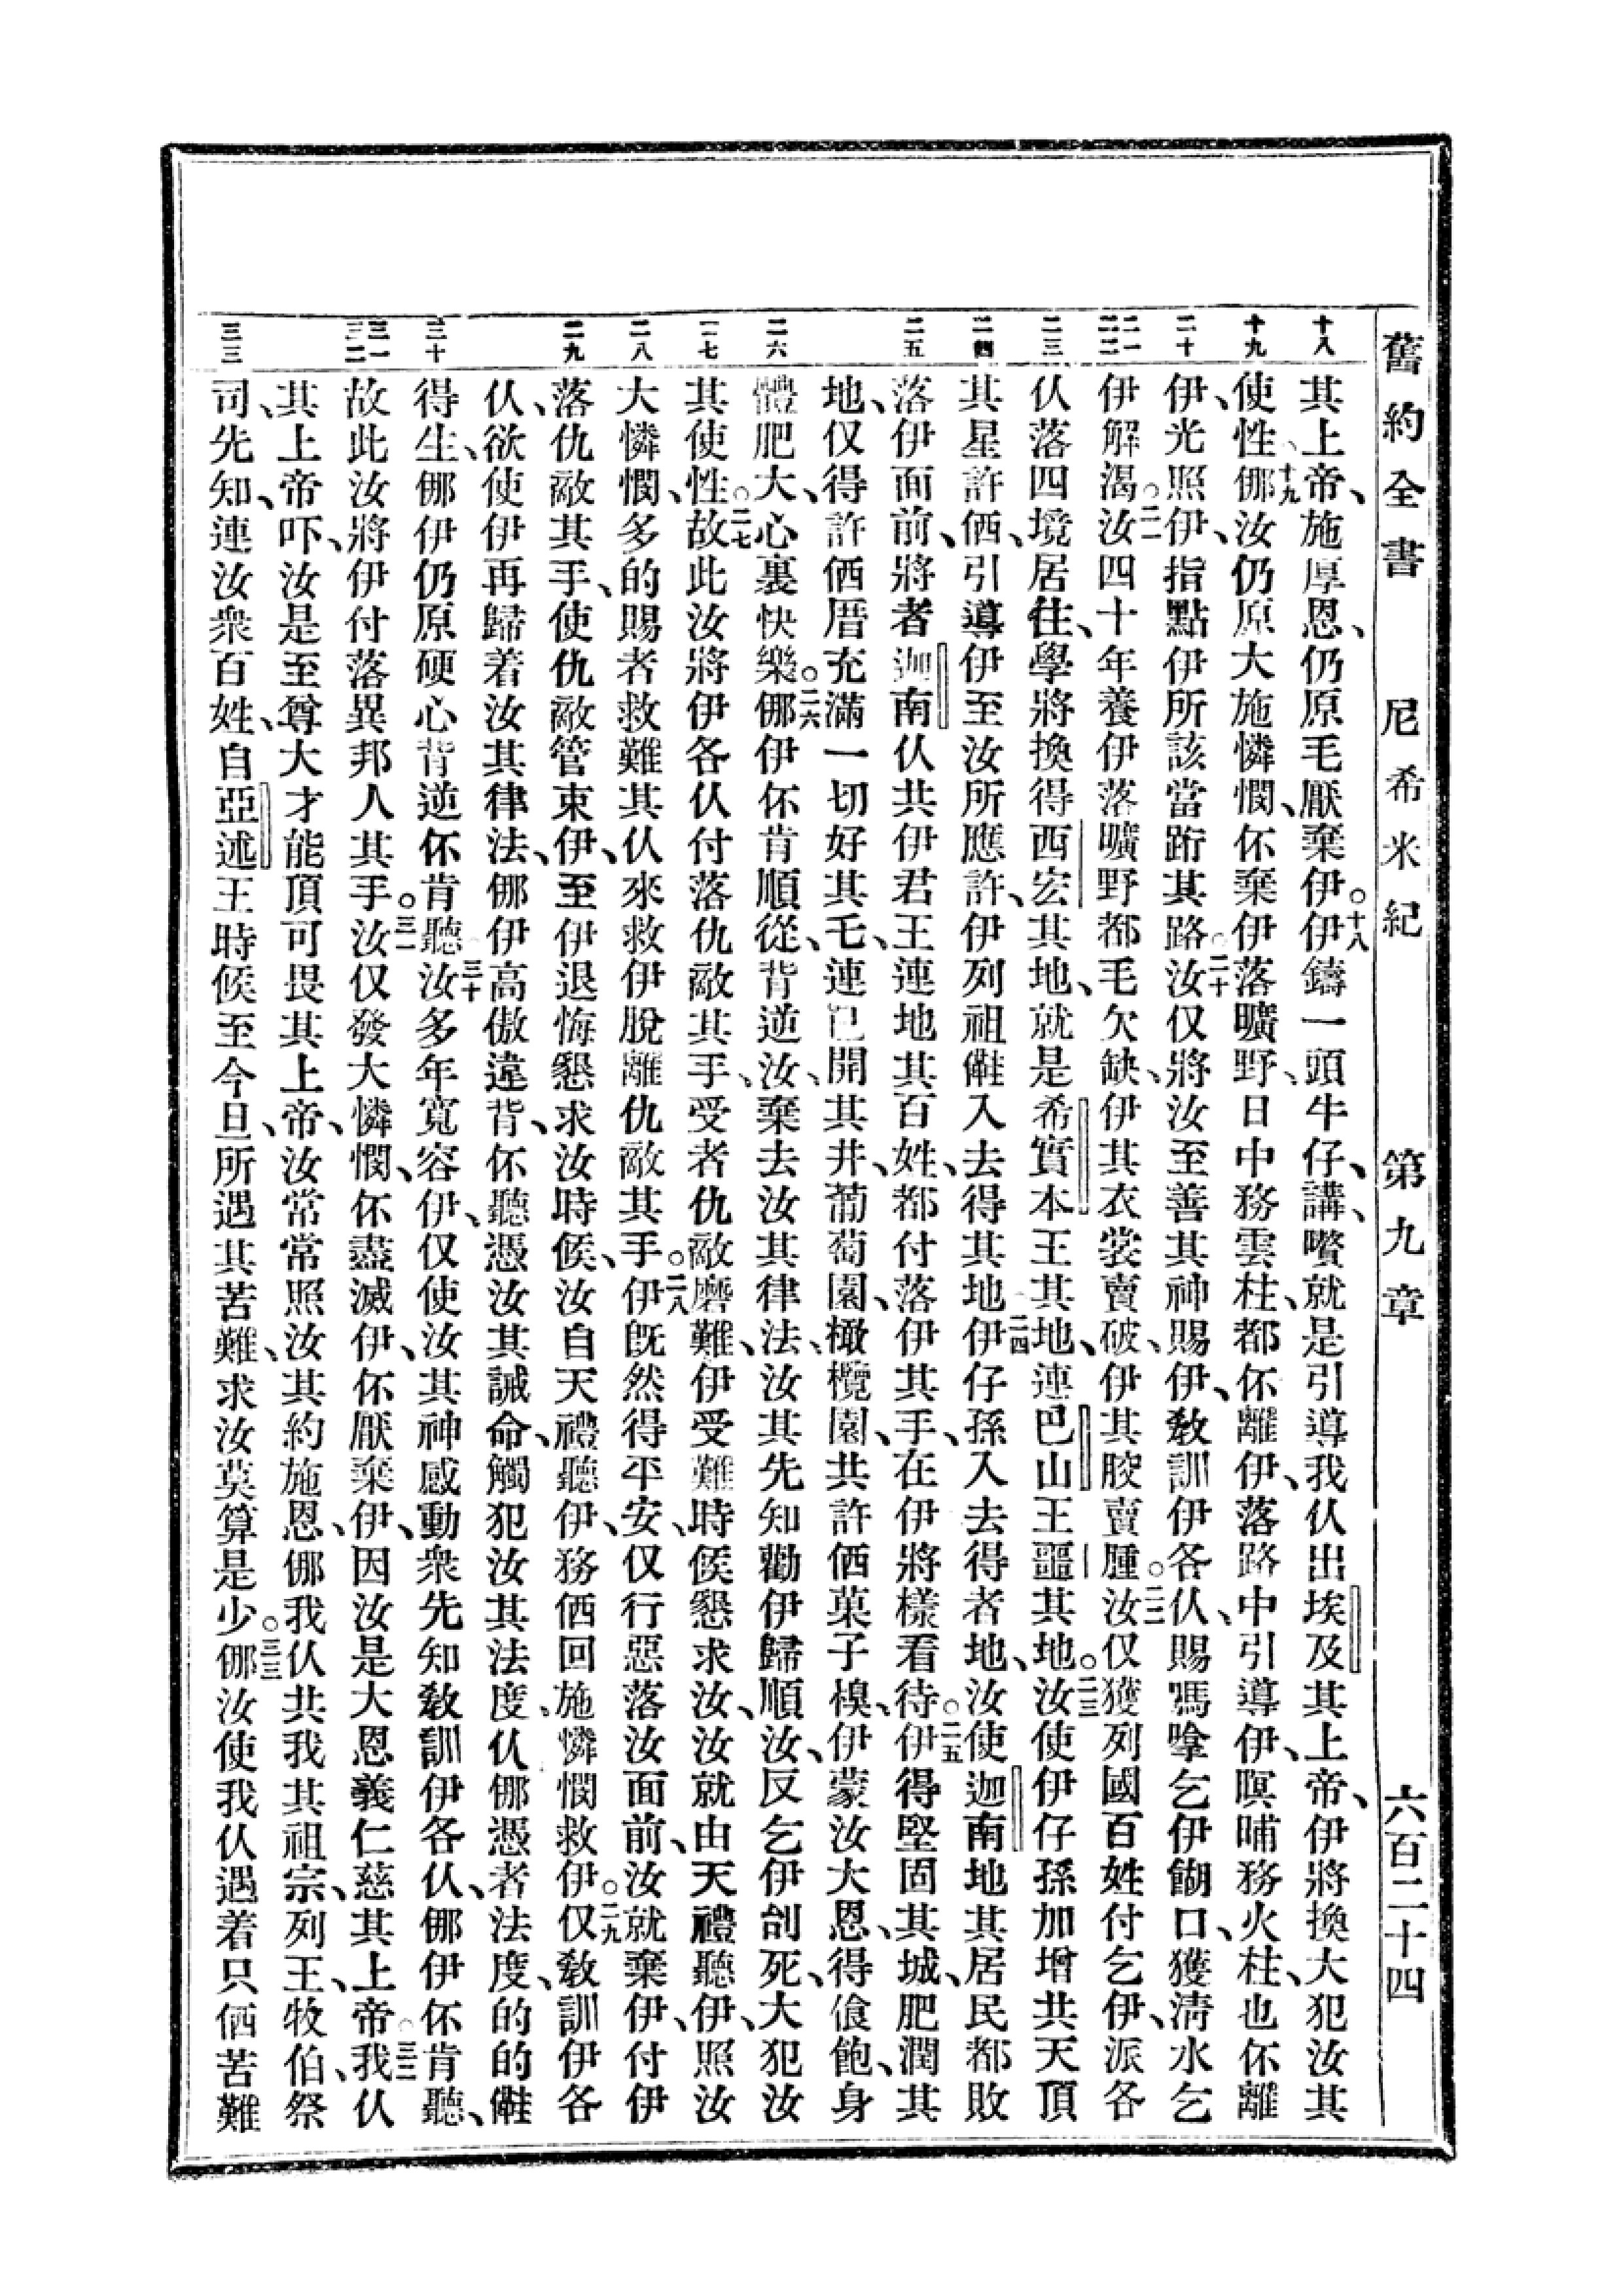 舊約全書 尼希米紀 第九章 六百二十四
十八
其上帝、施厚恩、仍原毛厭棄伊。十八伊鑄一頭牛仔、講、嚽就是引導我仈出埃及其上帝、伊將換大犯汝其
十九
使性、十九㑚汝仍原大施憐憫、伓棄伊落曠野、日中務雲柱、都伓離伊、落路中引導伊、暝晡務火柱、也伓離
二十
伊、光照伊、指點伊所該當跡其路。二十汝仅將汝至善其神賜伊、敎訓伊各仈、賜嗎嗱乞伊餬口、獲淸水乞
二一 二二
伊解渴。二一汝四十年養伊落曠野、都毛欠缺、伊其衣裳賣破、伊其骹賣腫。二二汝仅獲列國百姓付乞伊、派各
二三
仈落四境居住、學將換得西宏其地、就是希實本王其地、連巴山王噩其地。二三汝使伊仔孫加增共天頂
二四
其星許価、引導伊至汝所應許、伊列祖𨅔入去得其地、二四伊仔孫入去得者地、汝使迦南地其居民都敗
二五
落伊面前、將者迦南仈共伊君王、連地其百姓、都付落伊其手、在伊將樣看待。二五伊得堅固其城、肥潤其
地、仅得許価厝充滿一切好其乇、連已開其井、葡萄園、橄欖園、共許価菓子模、伊蒙汝大恩、得飡飽、身
二六
體肥大、心裏快樂。二六㑚伊伓肯順從、背逆汝、棄去汝其律法、汝其先知勸伊歸順汝、反乞伊刣死、大犯汝
二七
其使性。二七故此汝將伊各仈付落仇敵其手、受者仇敵磨難、伊受難時候懇求汝、汝就由天禮聽伊、照汝
二八
大憐憫、多的賜者救難其仈來救伊脫離仇敵其手。二八伊旣然得平安、仅行惡落汝面前、汝就棄伊、付伊
二九
落仇敵其手、使仇敵管束伊、至伊退悔懇求汝時候、汝自天禮聽伊、務価回施憐憫救伊。二九仅敎訓伊各
仈、欲使伊再歸着汝其律法、㑚伊高傲違背、伓聽憑汝其誡命、觸犯汝其法度、仈㑚憑者法度、的的𨅔
三十
得生、㑚伊仍原硬心背逆伓肯聽。三十汝多年寬容伊、仅使汝其神感動衆先知敎訓伊各仈、㑚伊伓肯聽、
三一 三二
故此汝將伊付落異邦人其手。三一汝仅發大憐憫、伓盡滅伊、伓厭棄伊、因汝是大恩義仁慈其上帝。三二我仈
其上帝吓、汝是至尊大才能頂可畏其上帝、汝常常照汝其約施恩、㑚我仈共我其祖宗、列王、牧伯、祭
三三
司、先知、連汝衆百姓、自亞述王時候至今旦、所遇其苦難、求汝莫算是少。三三㑚汝使我仈遇着只価苦難